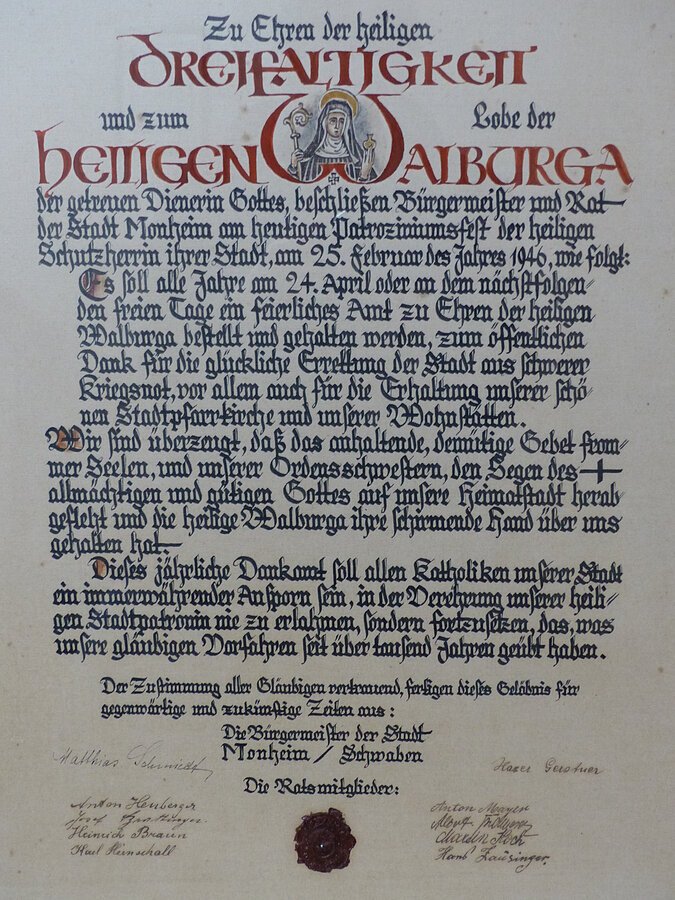 Zu Ehren der heiligen
DREIFALTIGKEIT
und zum Lobe der
HEILIGEN WALBURGA
der getreuen Dienerin Gottes, beschließen Bürgermeister und Rat
der Stadt Monheim am heutigen Patroziniumsfest der heiligen
Schutzherrin ihrer Stadt, am 25. Februar des Jahres 1946, wie folgt:
Es soll alle Jahre am 24. April oder an dem nächstfolgen-
den freien Tage ein feierliches Amt zu Ehren der heiligen
Walburga bestellt und gehalten werden, zum öffentlichen
Dank für die glückliche Errettung der Stadt aus schwerer
Kriegsnot, vor allem auch für die Erhaltung unserer schö-
nen Stadtpfarrkirche und unserer Wohnstätten.
Wir sind überzeugt, daß das anhaltende, demütige Gebet from-
mer Seelen, und unserer Ordensschwestern, den Segen des
allmächtigen und gütigen Gottes auf unsere Heimatstadt herab-
gefleht und die heilige Walburga ihre schirmende Hand über uns
gehalten hat.
Dieses jährliche Dankamt soll allen Katholiken unserer Stadt
ein immerwährender Ansporn sein, in der Verehrung unserer heili-
gen Stadtpatronin nie zu erlahmen, sondern fortzusetzen, das, was
unsere gläubigen Vorfahren seit über tausend Jahren geübt haben.
Der Zustimmung aller Gläubigen vertrauend, fertigen dieses Gelöbnis für
gegenwärtige und zukünftige Zeiten aus:
Die Bürgermeister der Stadt
Monheim / Schwaben
Matthias Schmidt, Gerstner
Die Ratsmitglieder:
Anton Heuberger Anton Mayer
Josef
Heinrich Braun Martin Koch
Karl Hienschall Hans Lausinger.